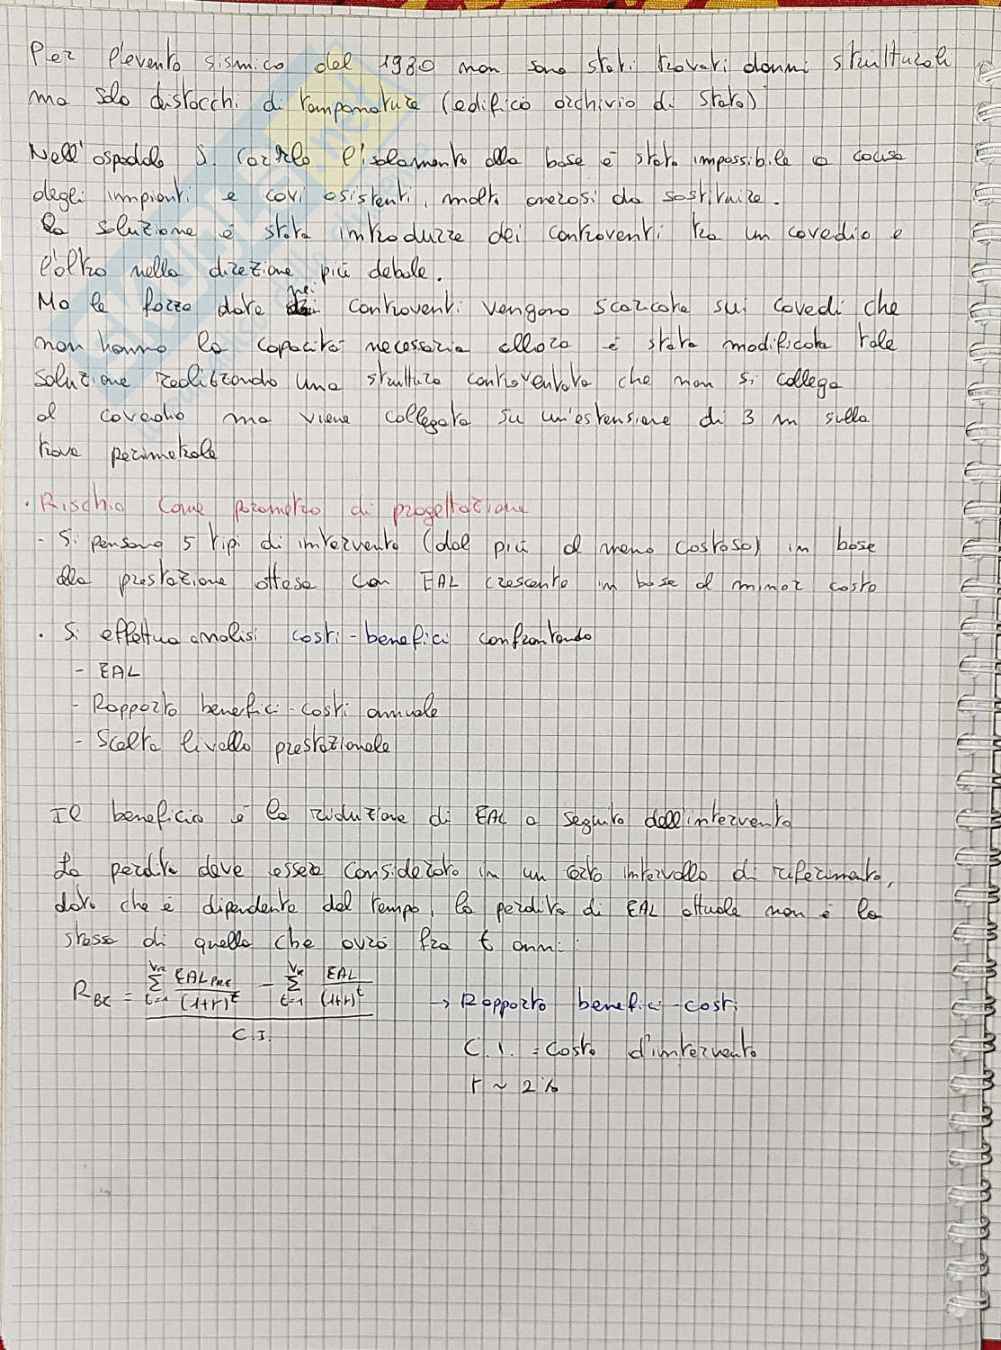 Per l'evento sismico del 1980 non sono stati trovati danni strutturali
ma solo distacchi di tamponature (edificio archivio di stato)
Nell'ospedale S. Carlo l'isolamento alla base è stato impossibile a causa
degli impianti e cavi esistenti, molto onerosi da sostituire.
La soluzione è stata introdurre dei controventi tra un cavedio e
l'altro nella direzione più debole.
Ma le forze date nei controventi vengono scaricate sui cavedi che
non hanno la capacità necessaria allora è stata modificata tale
soluzione realizzando una struttura controventata che non si collega
al cavedio ma viene collegata su un'estensione di 3 m sulla
trave perimetrale
· Rischio come parametro di progettazione
- Si pensano 5 tipi di intervento (dal più al meno costoso) in base
alla prestazione attesa con EAL crescente in base al minor costo
· Si effettua analisi costi-benefici confrontando
- EAL
- Rapporto benefici-costi annuale
- Scelta livello prestazionale
Il beneficio è la riduzione di EAL a seguito dell'intervento
La perdita deve essere considerata in un certo intervallo di riferimento,
dato che è dipendente dal tempo, la perdita di EAL attuale non è la
stessa di quella che avrò fra t anni:
R_BC = (∑_{t=1}^{V_R} EAL_PRE/(1+r)^t - ∑_{t=1}^{V_R} EAL/(1+r)^t) / C.I. → Rapporto benefici-costi
C.I. = Costo d'intervento
r ~ 2%